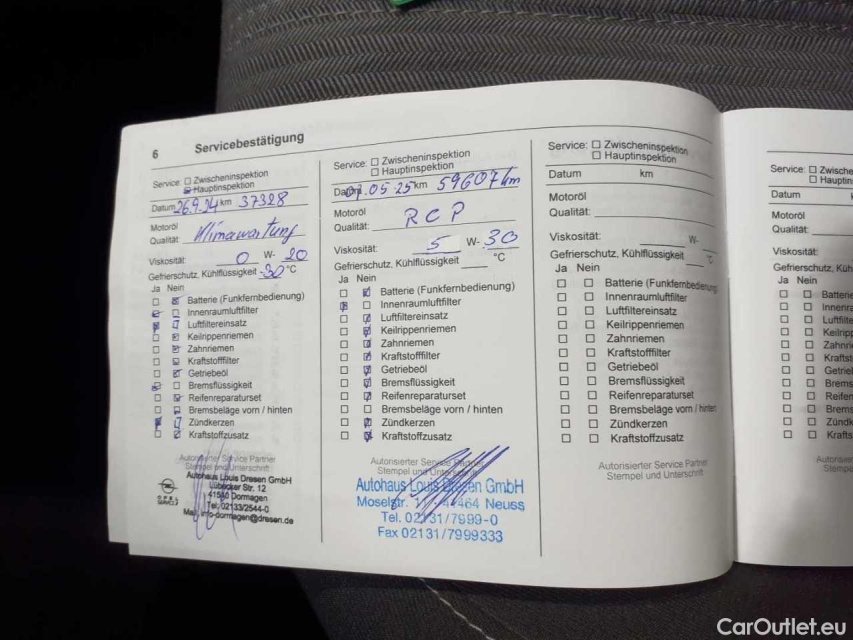 6
Servicebestätigung
Service: Zwischeninspektion
Hauptinspektion
Datum 26.9.24 km 37328
Motoröl
Qualität: Klimawartung
Viskosität: 0 W- 20
Gefrierschutz, Kühlflüssigkeit -30 °C
Ja Nein
Batterie (Funkfernbedienung)
Innenraumluftfilter
Luftfiltereinsatz
Keilrippenriemen
Zahnriemen
Kraftstofffilter
Getriebeöl
Bremsflüssigkeit
Reifenreparaturset
Bremsbeläge vorn / hinten
Zündkerzen
Kraftstoffzusatz
Autorisierter Service Partner
Stempel und Unterschrift
Autohaus Louis Dresen GmbH
Lübecker Str. 12
41540 Dormagen
Tel. 02133/2544-0
Mail: info-dormagen@dresen.de
OPEL
SERVICE
Service: Zwischeninspektion
Hauptinspektion
Datum 07.05.25 km 59607 km
Motoröl
Qualität: RCP
Viskosität: 5 W- 30
Gefrierschutz, Kühlflüssigkeit °C
Ja Nein
Batterie (Funkfernbedienung)
Innenraumluftfilter
Luftfiltereinsatz
Keilrippenriemen
Zahnriemen
Kraftstofffilter
Getriebeöl
Bremsflüssigkeit
Reifenreparaturset
Bremsbeläge vorn / hinten
Zündkerzen
Kraftstoffzusatz
Autorisierter Service Partner
Stempel und Unterschrift
Autohaus Louis Dresen GmbH
Moselstr. 41464 Neuss
Tel. 02131/7999-0
Fax 02131/7999333
Service: Zwischeninspektion
Hauptinspektion
Datum km
Motoröl
Qualität:
Viskosität: W-
Gefrierschutz, Kühlflüssigkeit °C
Ja Nein
Batterie (Funkfernbedienung)
Innenraumluftfilter
Luftfiltereinsatz
Keilrippenriemen
Zahnriemen
Kraftstofffilter
Getriebeöl
Bremsflüssigkeit
Reifenreparaturset
Bremsbeläge vorn / hinten
Zündkerzen
Kraftstoffzusatz
Autorisierter Service Partner
Stempel und Unterschrift
Service: Zwische
Hauptin
Datum
Motoröl
Qualität:
Viskosität:
Gefrierschutz, Küh
Ja Nein
Batterie
Innenra
Luftfilte
Keilripp
Zahnri
Kraftst
Getrie
Brems
Reifen
Brems
Zündk
Krafts
Autoris
Stemp
CarOutlet.eu